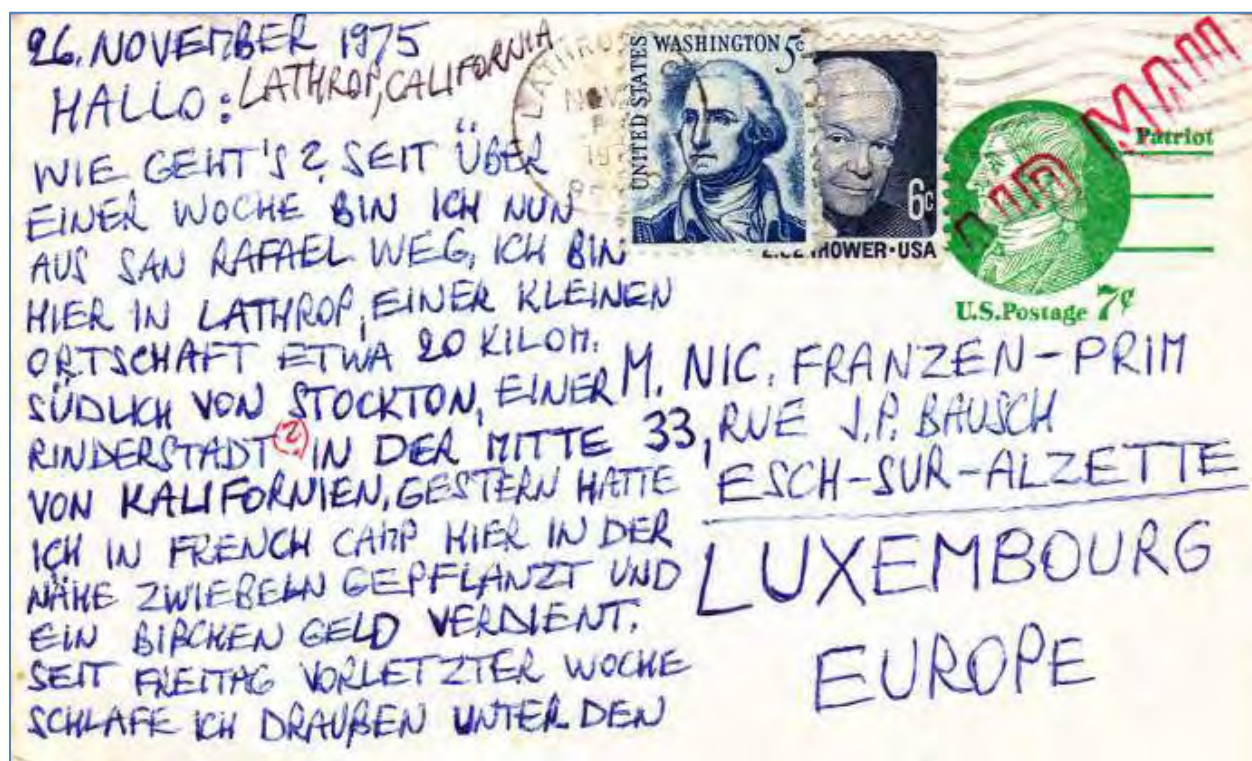 26. NOVEMBER 1975
LATHROP, CALIFORNIA
HALLO:
WIE GEHT'S? SEIT ÜBER
EINER WOCHE BIN ICH NUN
AUS SAN RAFAEL WEG, ICH BIN
HIER IN LATHROP, EINER KLEINEN
ORTSCHAFT ETWA 20 KILOM.
SÜDLICH VON STOCKTON, EINER
RINDERSTADT (2) IN DER MITTE
VON KALIFORNIEN, GESTERN HATTE
ICH IN FRENCH CAMP HIER IN DER
NÄHE ZWIEBELN GEPFLANZT UND
EIN BIßCHEN GELD VERDIENT.
SEIT FREITAG VORLETZTER WOCHE
SCHLAFE ICH DRAUßEN UNTER DEN
UNITED STATES
WASHINGTON 5c
6c
HOWER·USA
Patriot
U.S.Postage 7¢
LATHROP
NOV
M. NIC. FRANZEN-PRIM
33, RUE J.P. BAUSCH
ESCH-SUR-ALZETTE
LUXEMBOURG
EUROPE